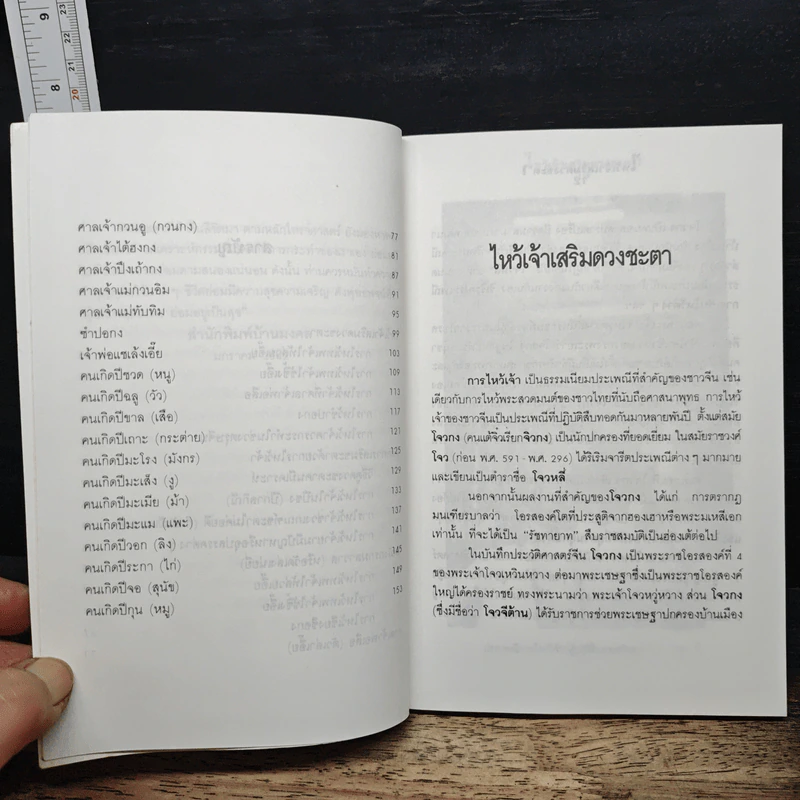 8
9
20
21
22
23
ศาลเจ้ากวนอู (กวนกง) 77
ศาลเจ้าไต้ฮงกง 81
ศาลเจ้าปึงเถ้ากง 87
ศาลเจ้าแม่กวนอิม 91
ศาลเจ้าแม่ทับทิม 95
ซำปอกง 99
เจ้าพ่อแซเล้งเอี๊ย 103
คนเกิดปีชวด (หนู) 109
คนเกิดปีฉลู (วัว) 113
คนเกิดปีขาล (เสือ) 117
คนเกิดปีเถาะ (กระต่าย) 121
คนเกิดปีมะโรง (มังกร) 125
คนเกิดปีมะเส็ง (งู) 129
คนเกิดปีมะเมีย (ม้า) 133
คนเกิดปีมะแม (แพะ) 137
คนเกิดปีวอก (ลิง) 141
คนเกิดปีระกา (ไก่) 145
คนเกิดปีจอ (สุนัข) 149
คนเกิดปีกุน (หมู) 153
ไหว้เจ้าเสริมดวงชะตา
การไหว้เจ้า เป็นธรรมเนียมประเพณีที่สำคัญของชาวจีน เช่น
เดียวกับการไหว้พระสวดมนต์ของชาวไทยที่นับถือศาสนาพุทธ การไหว้
เจ้าของชาวจีนเป็นประเพณีที่ปฏิบัติสืบทอดกันมาหลายพันปี ตั้งแต่สมัย
โจวกง (คนแต้จิ๋วเรียกจิวกง) เป็นนักปกครองที่ยอดเยี่ยม ในสมัยราชวงค์
โจว (ก่อน พ.ศ. 591 - พ.ศ. 296) ได้ริเริ่มจารีตประเพณีต่าง ๆ มากมาย
และเขียนเป็นตำราชื่อ โจวหลี่
นอกจากนั้นผลงานที่สำคัญของโจวกง ได้แก่ การตรากฎ
มนเฑียรบาลว่า โอรสองค์โตที่ประสูติจากฮองเฮาหรือพระมเหสีเอก
เท่านั้น ที่จะได้เป็น "รัชทายาท" สืบราชสมบัติเป็นฮ่องเต้ต่อไป
ในบันทึกประวัติศาสตร์จีน โจวกง เป็นพระราชโอรสองค์ที่ 4
ของพระเจ้าโจวเหวินหวาง ต่อมาพระเชษฐาซึ่งเป็นพระราชโอรสองค์
ใหญ่ได้ครองราชย์ ทรงพระนามว่า พระเจ้าโจวหวู่หวาง ส่วน โจวกง
(ซึ่งมีชื่อว่า โจวจีต้าน) ได้รับราชการช่วยพระเชษฐาปกครองบ้านเมือง